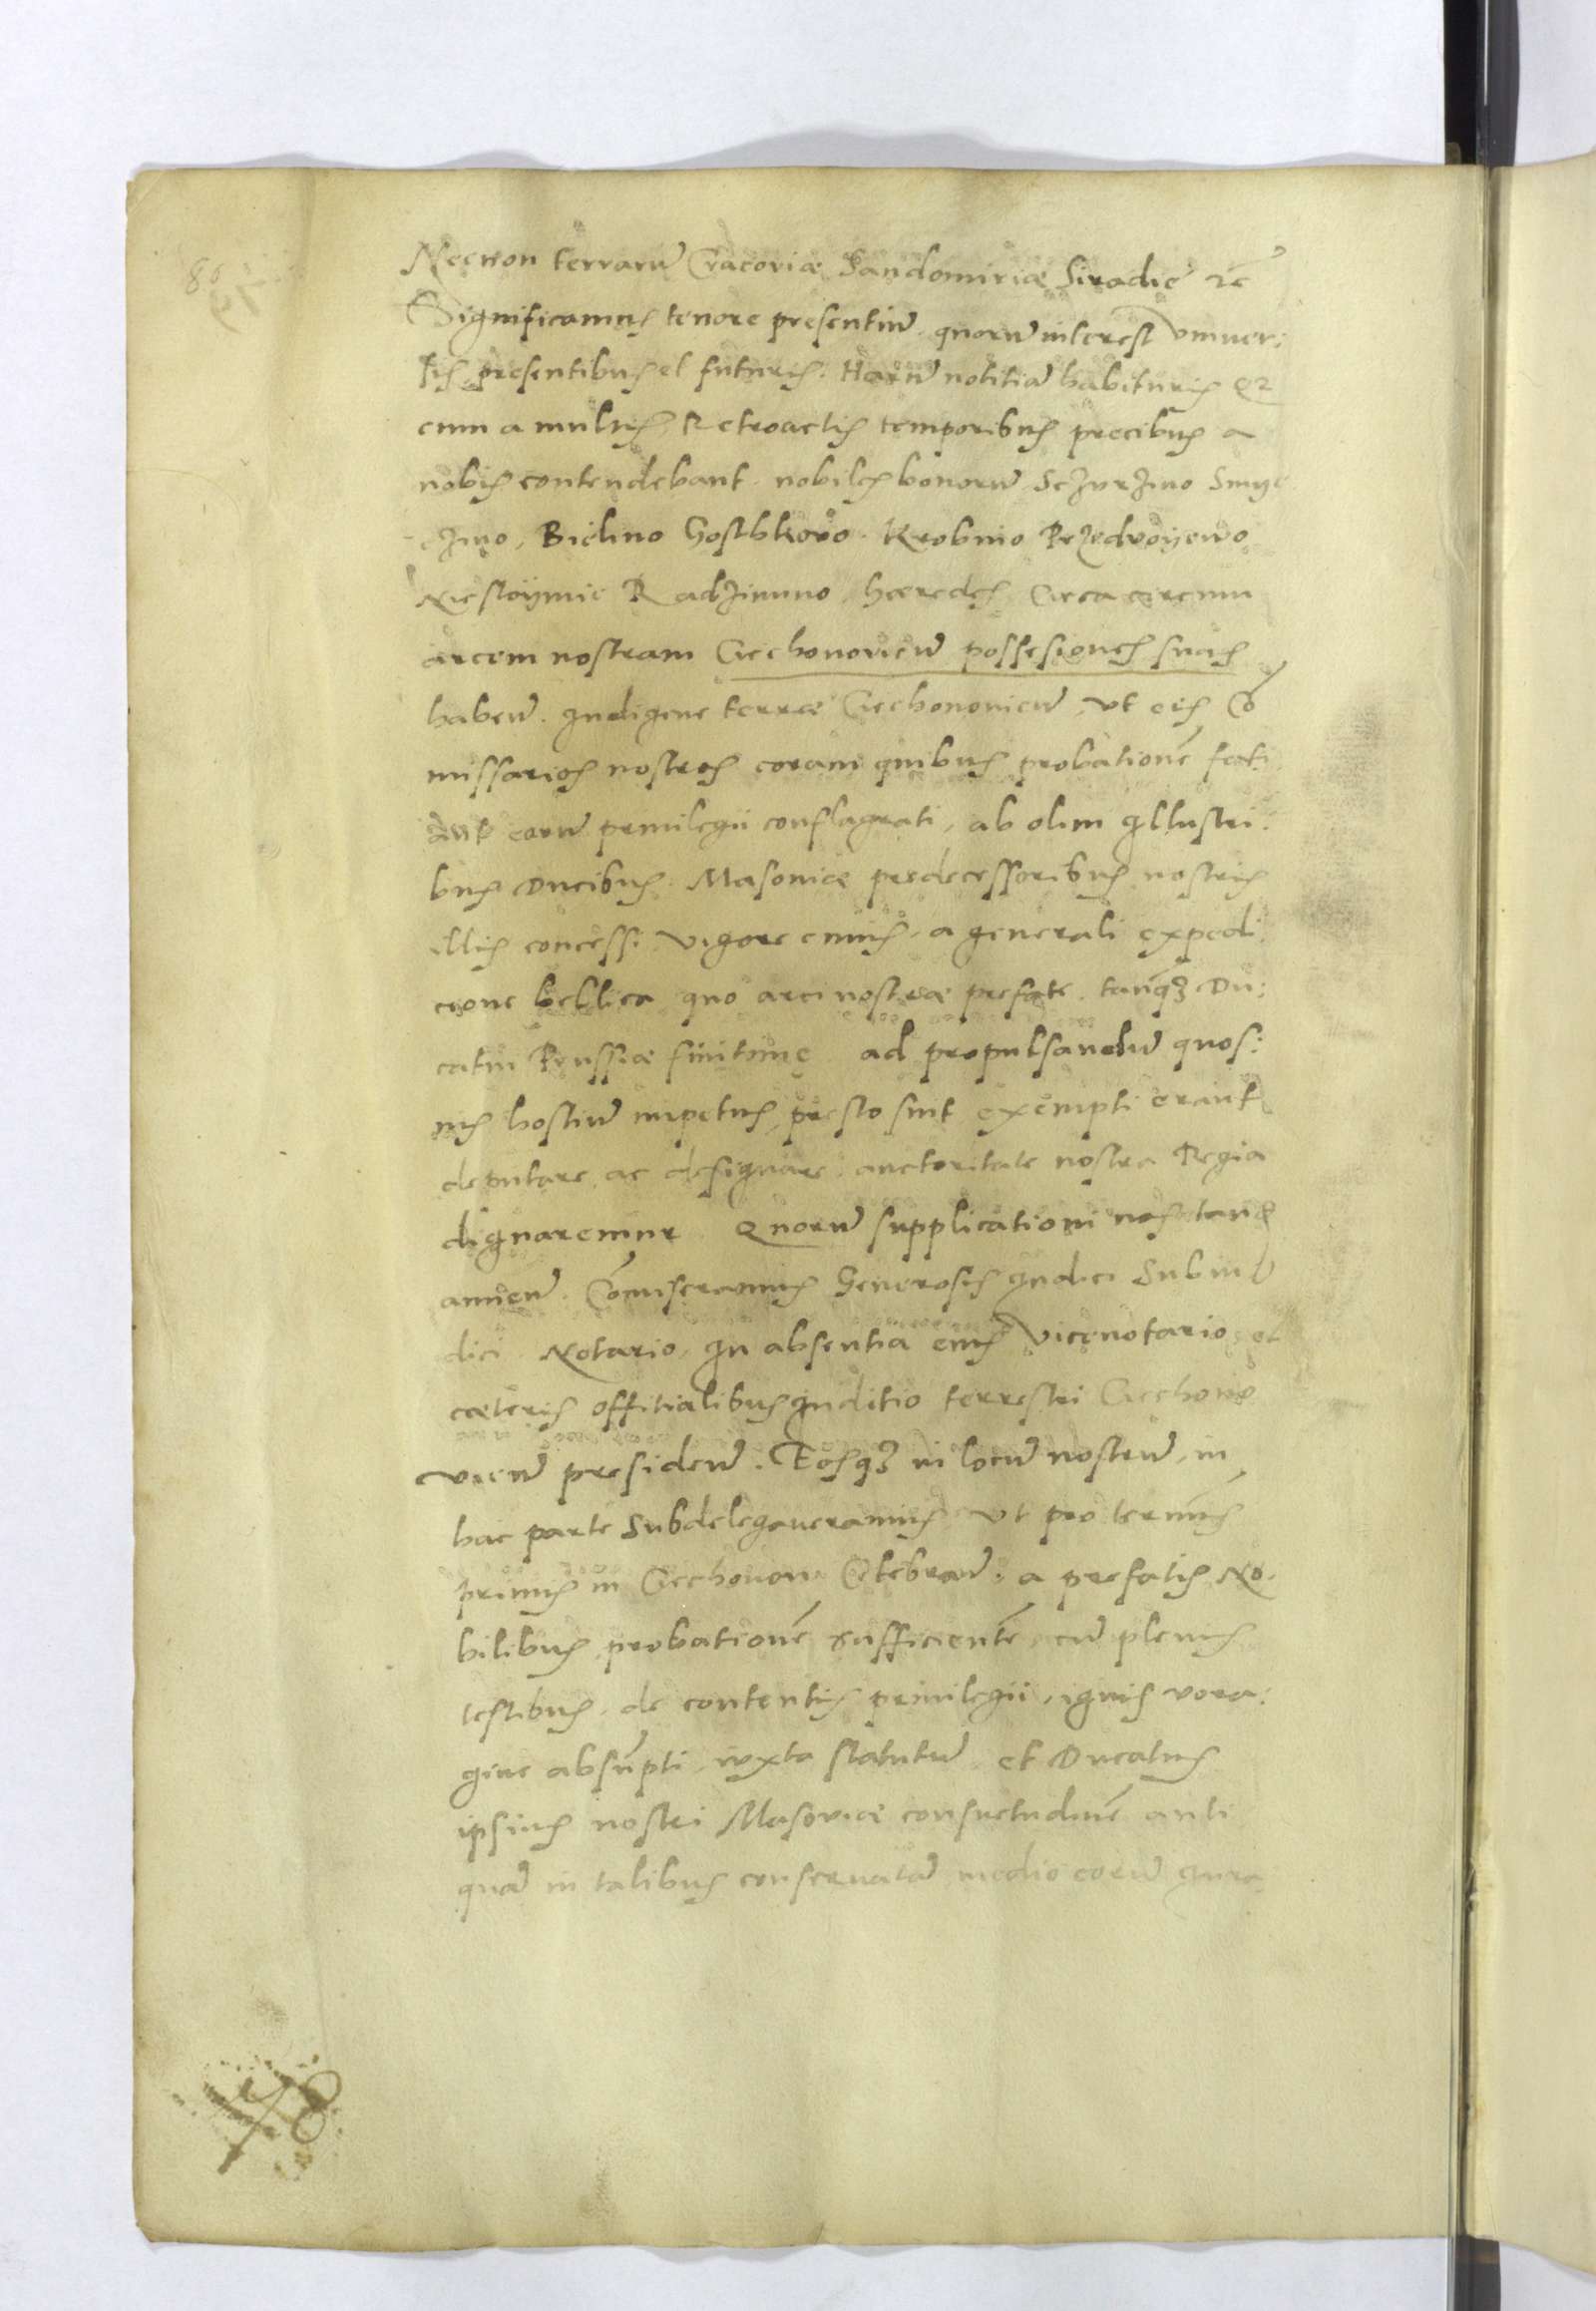 Necnon terrarũ Cracoviæ Sandomiriæ Siradie ꝛc̃
Significamus tenore presentiũ quorũ interest vniuer:
sis presentibus et futuris. Harũ notitiã habituris Qꝛ
cum a multis Retroactis temporibus precibus a
nobis contendebant nobiles bonorũ Sczurzino Smye
czino, Bielino Gosthkovo. Krobnio Przedvoyewo
Niestoÿmie Radzimino hæredes Circa circum
arcem nostram Ciechonovieñ possesiones suas
habeñ. Indigene terræ Ciechonovieñ, vt eis Cõ
missarios nostros coram quibus probationẽ faci
ant earũ priuilegii conflagrati, ab olim Illustri:
bus Ducibus Masoviæ predecessoribus nostris
illis concessi. vigore cuius a generali expedi
cione bellica quo arci nostræ prefate. tanqꝫ Du:
catui Prussiæ finitimę ad propulsandũ quos:
uis hostiũ impetus, presto sint exempti erant
deputare ac designare auctoritate nostra Regia
dignaremur Quorũ supplicationi nos tanꝗ
annueñ. Cõmiseramus Generosis Iudici Subiu
dici Notario, In absentia eius Vicenotario et
cæteris offitialibus Iuditio terrestri Ciechono
vieñ presideñ. Eosqꝫ in locũ nostrũ, in
hac parte Subdelegaveramus vt pro terminis
primis in Ciechonow Celebrañ. a prefatis No.
bilibus probationẽ sufficientẽ, cũ plenis
testibus, de contentis priuilegii, ignis vora:
gine absũpti, iuxta statutũ et Ducatus
ipsius nostri Masoviæ consuetudinẽ anti
quã in talibus conseruatã medio eorũ Iura